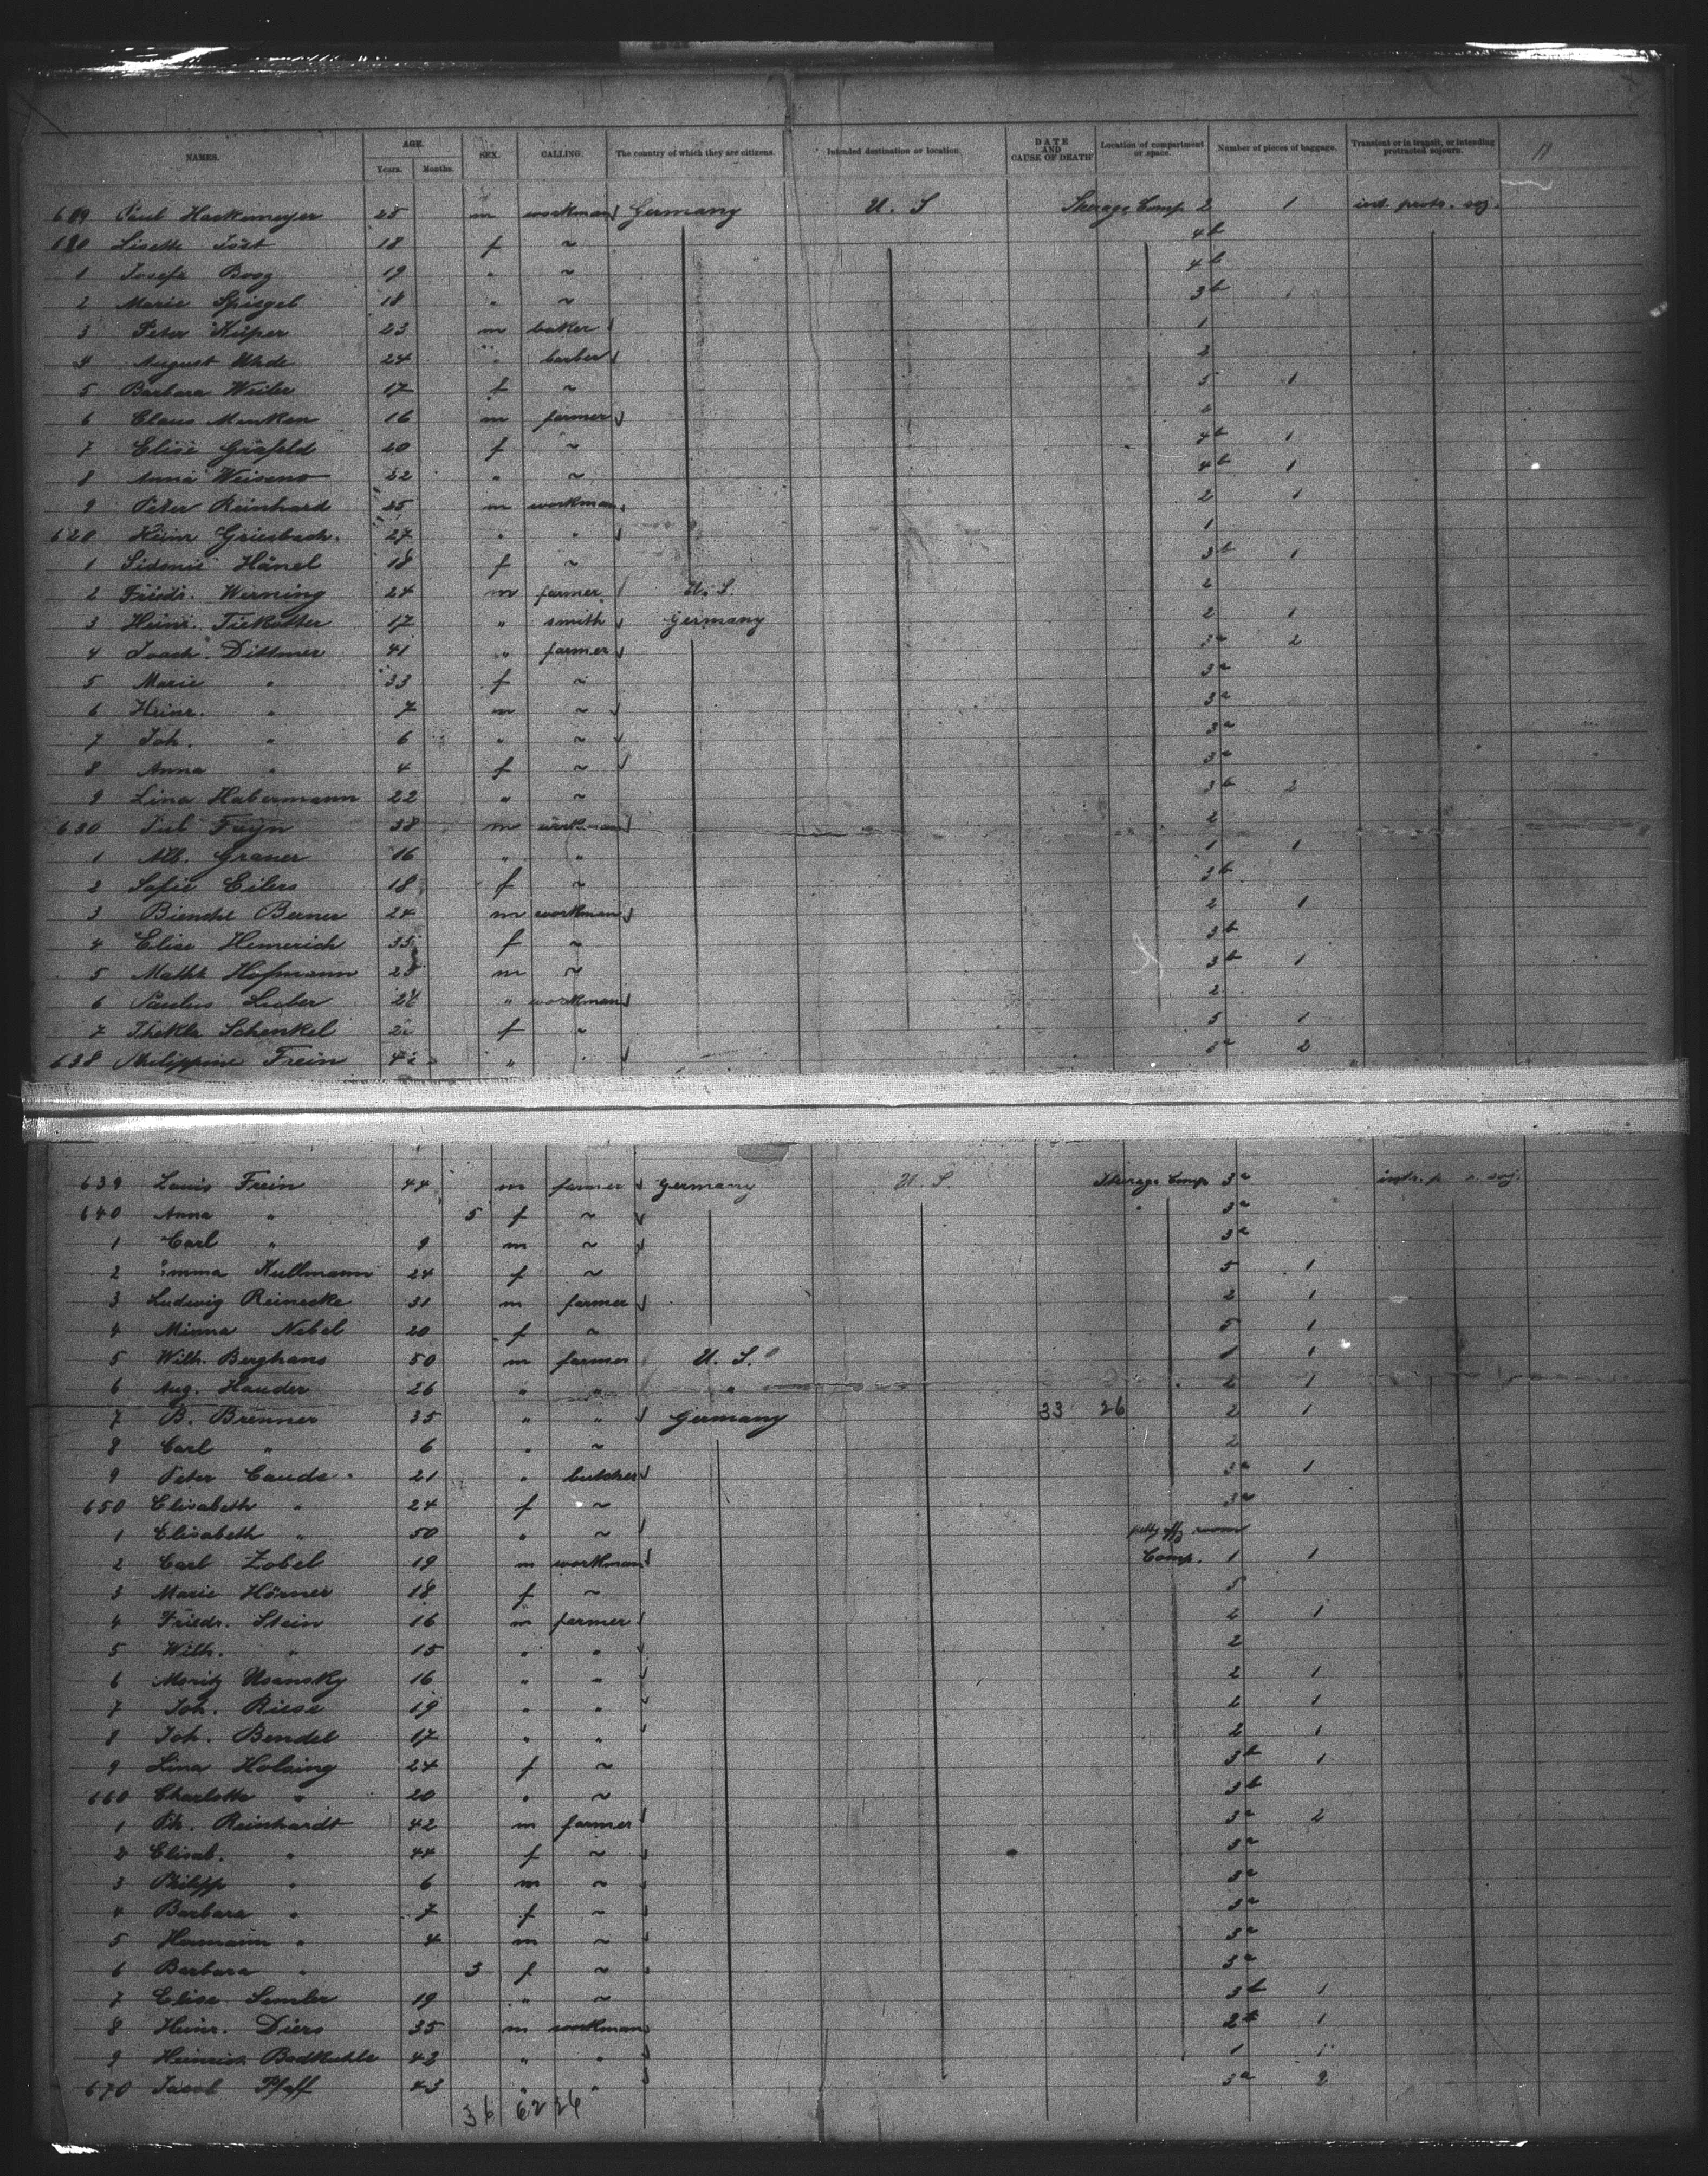 NAMES. AGE. Years. Months. SEX. CALLING. The country of which they are citizens. Intended destination or location. DATE AND CAUSE OF DEATH Location of compartment or space. Number of pieces of baggage. Transient or in transit, or intending protracted sojourn. 11
609 Paul Hackemeyer 25 m workman Germany U. S Steerage Comp 2 1 int. protr. soj.
610 Lisette Jost 18 f ~ 4b
1 Josefa Boog 19 " ~ 4b
2 Marie Spiegel 18 " ~ 3b 1
3 Peter Küper 23 m baker 1
4 August Uhde 24 " barber 2
5 Barbara Weiler 17 f ~ 5 1
6 Claus Menken 16 m farmer 2
7 Elise Gräfeld 20 f ~ 4b 1
8 Anna 22 " ~ 4b 1
9 Peter Reinhard 25 m workman 2 1
620 Heinr Griesbach 27 " " 1
1 Sidonie Hänel 18 f ~ 3b 1
2 Friedr. Werning 24 m farmer U. S. 2
3 Heinr. 17 " smith Germany 2 1
4 Joach. Dittmer 41 " farmer 3a 2
5 Marie " 33 f ~ 3a
6 Heinr. " 7 m ~ 3a
7 Joh. " 6 " ~ 3a
8 Anna " 4 f ~ 3a
9 Lina Habermann 22 " ~ 3b 2
630 38 m workman 2
1 Alb. Graner 16 " " 1 1
2 Sofie Eilers 18 f ~ 3b
3 Berner 24 m workman 2 1
4 Elise Hemerich 35 f ~ 3b
5 Hofmann 23 m ~ 3b 1
6 Paulus Luber " workman 2
7 Thekla Schenkel f ~ 5 1
638 Philippine Frein 42 " 3a 2
639 Louis Frein 44 m farmer Germany U. S. Steerage Comp 3a soj.
640 Anna " 5 f ~ 3a
1 Carl " 9 m ~ 3a
2 Emma Kullmann 24 f ~ 5 1
3 Ludwig Reinecke 31 m farmer 2 1
4 Minna Nebel 20 f ~ 5 1
5 Wilh. Berghans 50 m farmer U. S. 1 1
6 Aug. Hauder 26 " " " 2 1
7 B. Brenner 35 " " Germany 33 26 2 1
8 Carl " 6 " ~ 2
9 Peter Cauds 21 " butcher 3a 1
650 Elisabeth " 24 f ~ 3a
1 Elisabeth " 50 " ~ petty off. room
2 Carl Zobel 19 m workman Comp. 1 1
3 Marie Hörner 18 f ~ 5
4 Friedr. Stein 16 m farmer 2 1
5 Wilh. " 15 " " 2
6 Moritz Usansky 16 " " 2 1
7 Joh. Riese 19 " " 2 1
8 Joh. Bendel 17 " " 2 1
9 Lina Holsing 24 f ~ 3b 1
660 Charlotte " 20 " ~ 3b
1 Ph. Reinhardt 42 m farmer 3a 2
2 Elisab. " 44 f ~ 3a
3 Philipp " 6 m ~ 3a
4 Barbara " 7 f ~ 3a
5 Hermann " 4 m ~ 3a
6 Barbara " 3 f ~ 3a
7 Elise Semler 19 " ~ 3b 1
8 Heinr. Diers 35 m workman 2 1
9 Heinrich Badkuhle 43 " " 1 1
670 Jacob Pfaff 43 " " 3a 2
36 62 26